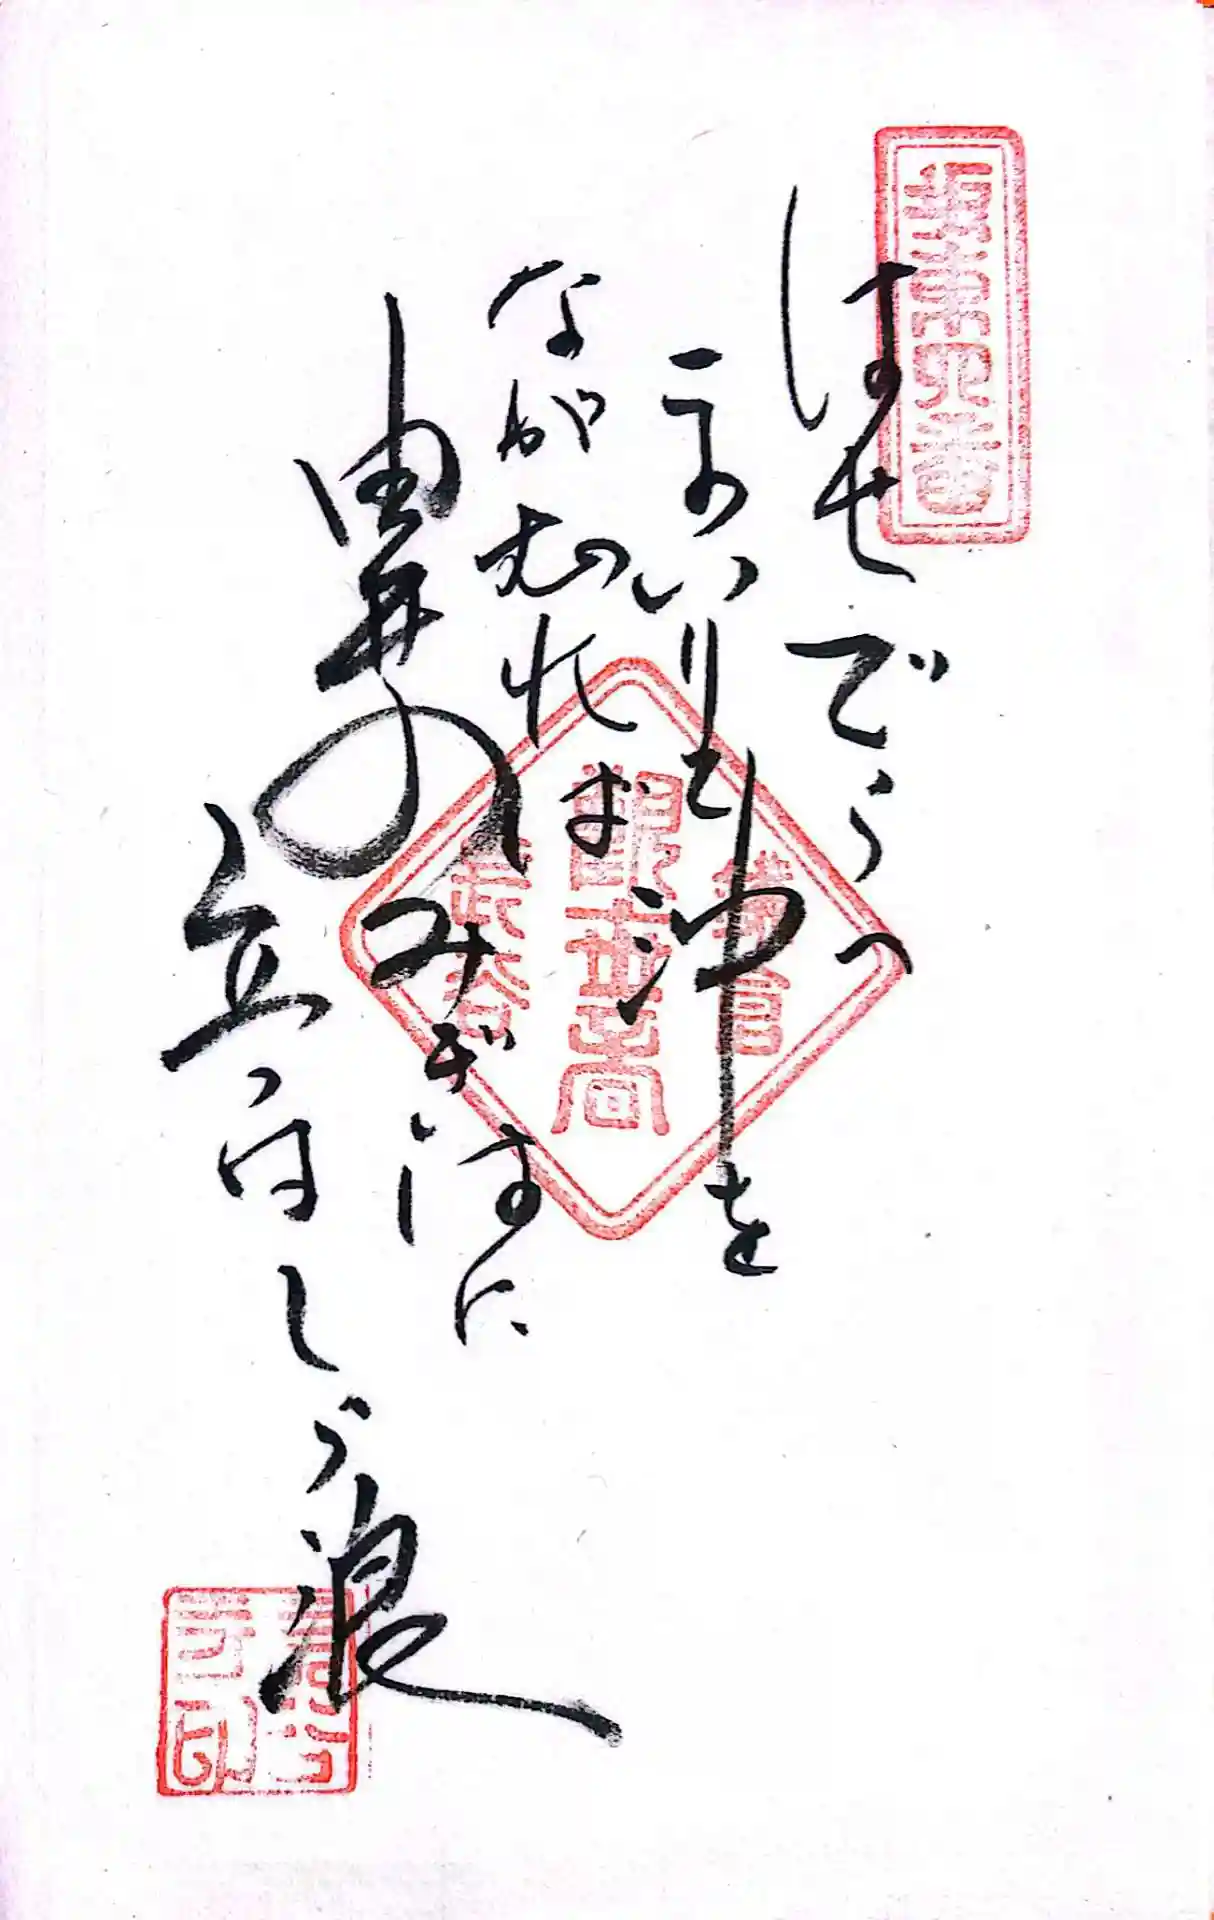 坂東四番
はせでらへ
まいりて沖を
ながむれば
由井のみぎはに
立つはしら浪
鎌倉
長谷
長谷
寺印